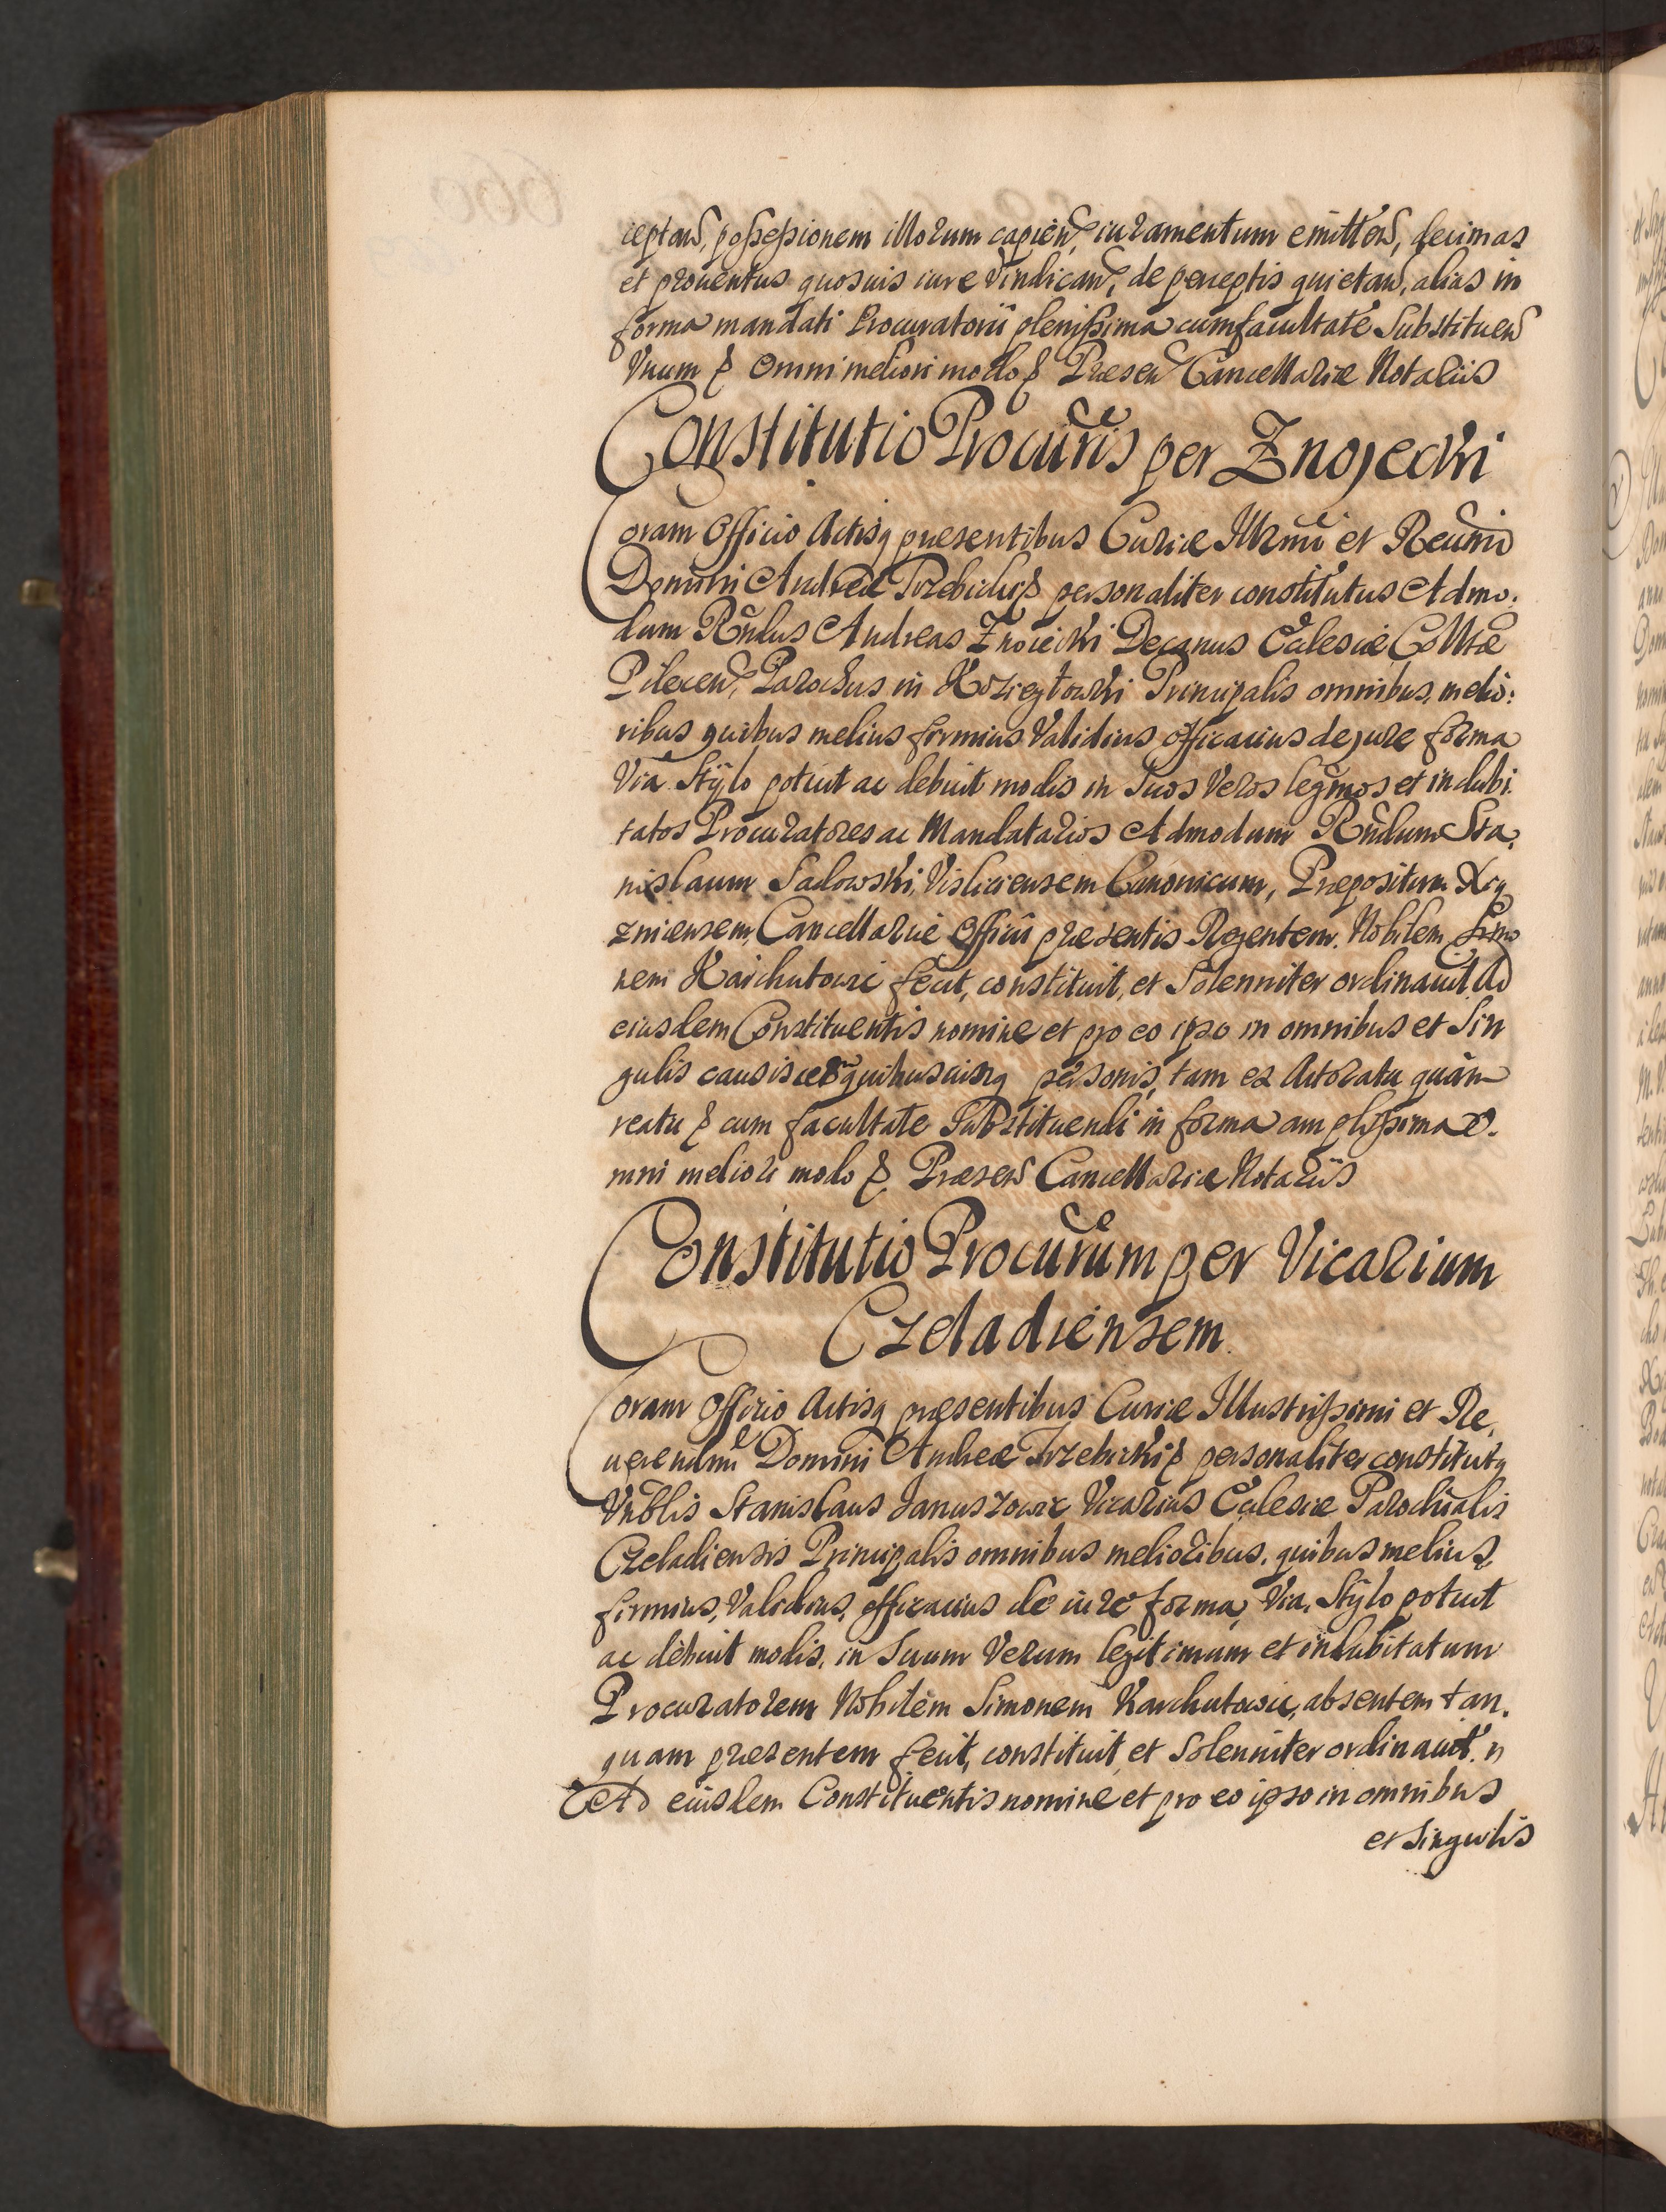 ceptand, possessionem illorum capiend, iuramentum emittend, decimas
et prouentus quosuis iure Vindicand, de perceptis quietand, alias in
forma mandati Procuratorii plenissima cum facultate Substituend
Vnum & Omni meliori modo & Præsen Cancellariæ Notariis
Constitutio Procuris per Znojecki
Coram Officio Actisq presentibus Curiæ Illrmi et Reumi
Domini Andreæ Trzebicki & personaliter constitutus Admo:
dum Rndus Andreas Znoiecki Decanus Ecclesiæ Colltæ
Pilecen, Parochus in Koziegłowki Principalis omnibus, melio:
ribus quibus melius firmius Validius efficacius de jure forma
Via Stylo potuit ac debuit modis in Suos Veros legmos et indubi
tatos Procuratores ac Mandatarios Admodum Rndum Sta,
nislaum Sadowski, Visliciensem Canonicum, Præpositum Xią
zniensem, Cancellariæ Officii præsentis Regentem. Nobilem Simo
nem Karchutowic fecit, constituit, et Solenniter ordinauit Ad
eiusdem Constituentis nomine et pro eo ipso in omnibus et Sin
gulis causis quibusuisq personis, tam ex Actoratu quàm
reatu & cum facultate Substituendi in forma amplissima O.
mni meliori modo & Præsen Cancellariæ Notariis
Constitutio Procurum per Vicarium
Czeladiensem.
Coram Officio Actisq præsentibus Curiæ Illustrissimi et Re,
uerendmi Domini Andreæ Trzebicki & personaliter constitutq
Vnblis Stanislaus Januszowic Vicarius Ecclesiæ Parochialis
Czeladiensis Principalis omnibus melioribus, quibus melius,
firmius, Validius, efficacius de iure forma, Via, Stylo potuit
ac debuit modis, in Suum Verum legitimum et indubitatum
Procuratorem Nobilem Simonem Karchutowic, absentem tan.
quam præsentem fecit, constituit, et Solenniter ordinauit.
Ad eiusdem Constituentis nomine et pro eo ipso in omnibus
et Singulis